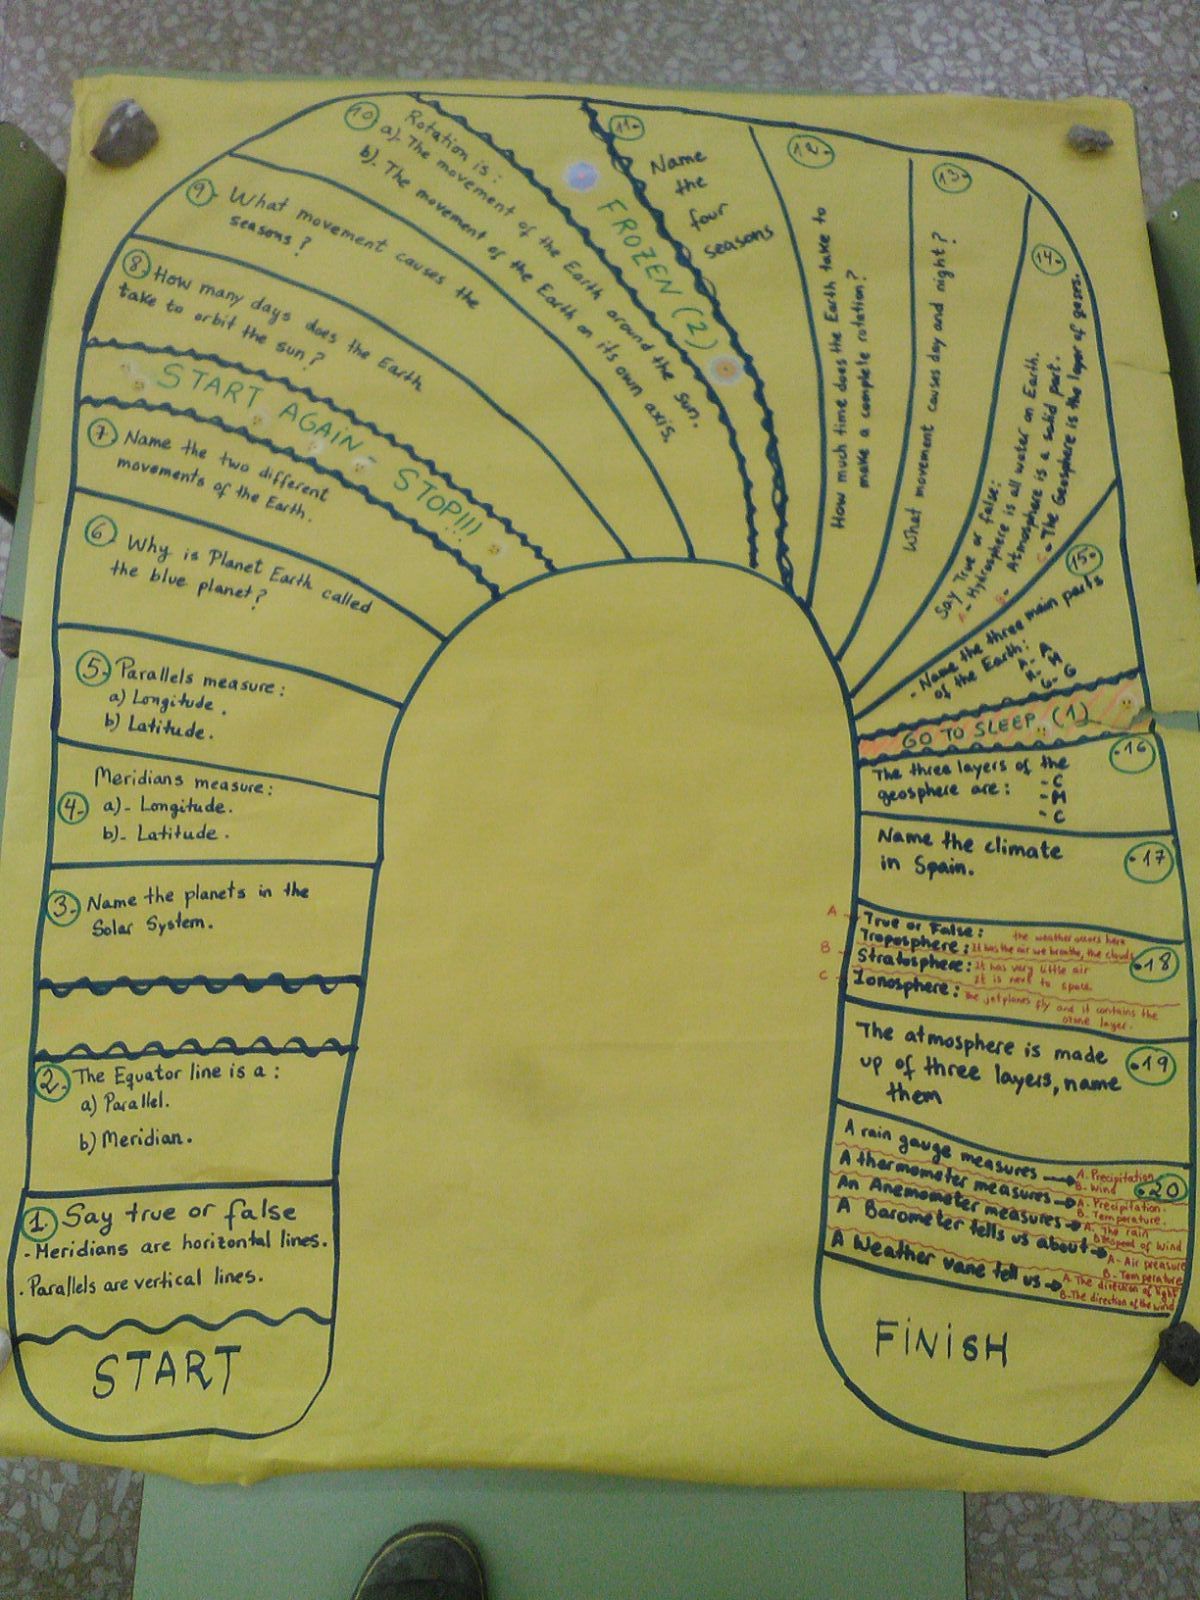 START
1. Say true or false
- Meridians are horizontal lines.
. Parallels are vertical lines.
2. The Equator line is a :
a) Parallel.
b) Meridian.
3.- Name the planets in the
Solar System.
4.- Meridians measure :
a)- Longitude.
b)- Latitude.
5.- Parallels measure :
a) Longitude.
b) Latitude.
6 Why is Planet Earth called
the blue planet?
7 Name the two different
movements of the Earth.
START AGAIN - STOP!!!
8. How many days does the Earth
take to orbit the sun?
9- What movement causes the
seasons?
10 Rotation is :
a). The movement of the Earth around the sun.
b). The movement of the Earth on its own axis.
FROZEN (2)
11- Name
the
four
seasons
12-
How much time does the Earth take to
make a complete rotation?
13-
What movement causes day and night?
14-
Say True or false:
A- Hydrosphere is all water on Earth.
B- Atmosphere is a solid part.
C- The Geosphere is the layer of gases.
15-
- Name the three main parts
of the Earth:
A- A
H- H
G- G
GO TO SLEEP (1)
.16
The three layers of the
geosphere are :
- C
- M
- C
.17
Name the climate
in Spain.
.18
A - True or False :
the weather occurs here
Troposphere : It has the air we breathe, the clouds
B - Stratosphere : It has very little air
It is next to space
C - Ionosphere : The jetplanes fly and it contains the
ozone layer.
.19
The atmosphere is made
up of three layers, name
them
.20
A rain gauge measures → A- Precipitation
B- Wind
A thermometer measures → A- Precipitation.
B- Temperature.
An Anemometer measures → A. The rain
B. Speed of wind
A Barometer tells us about → A- Air preasure
B- Temperature
A Weather vane tell us → A- The direction of light
B- The direction of the wind
FINISH